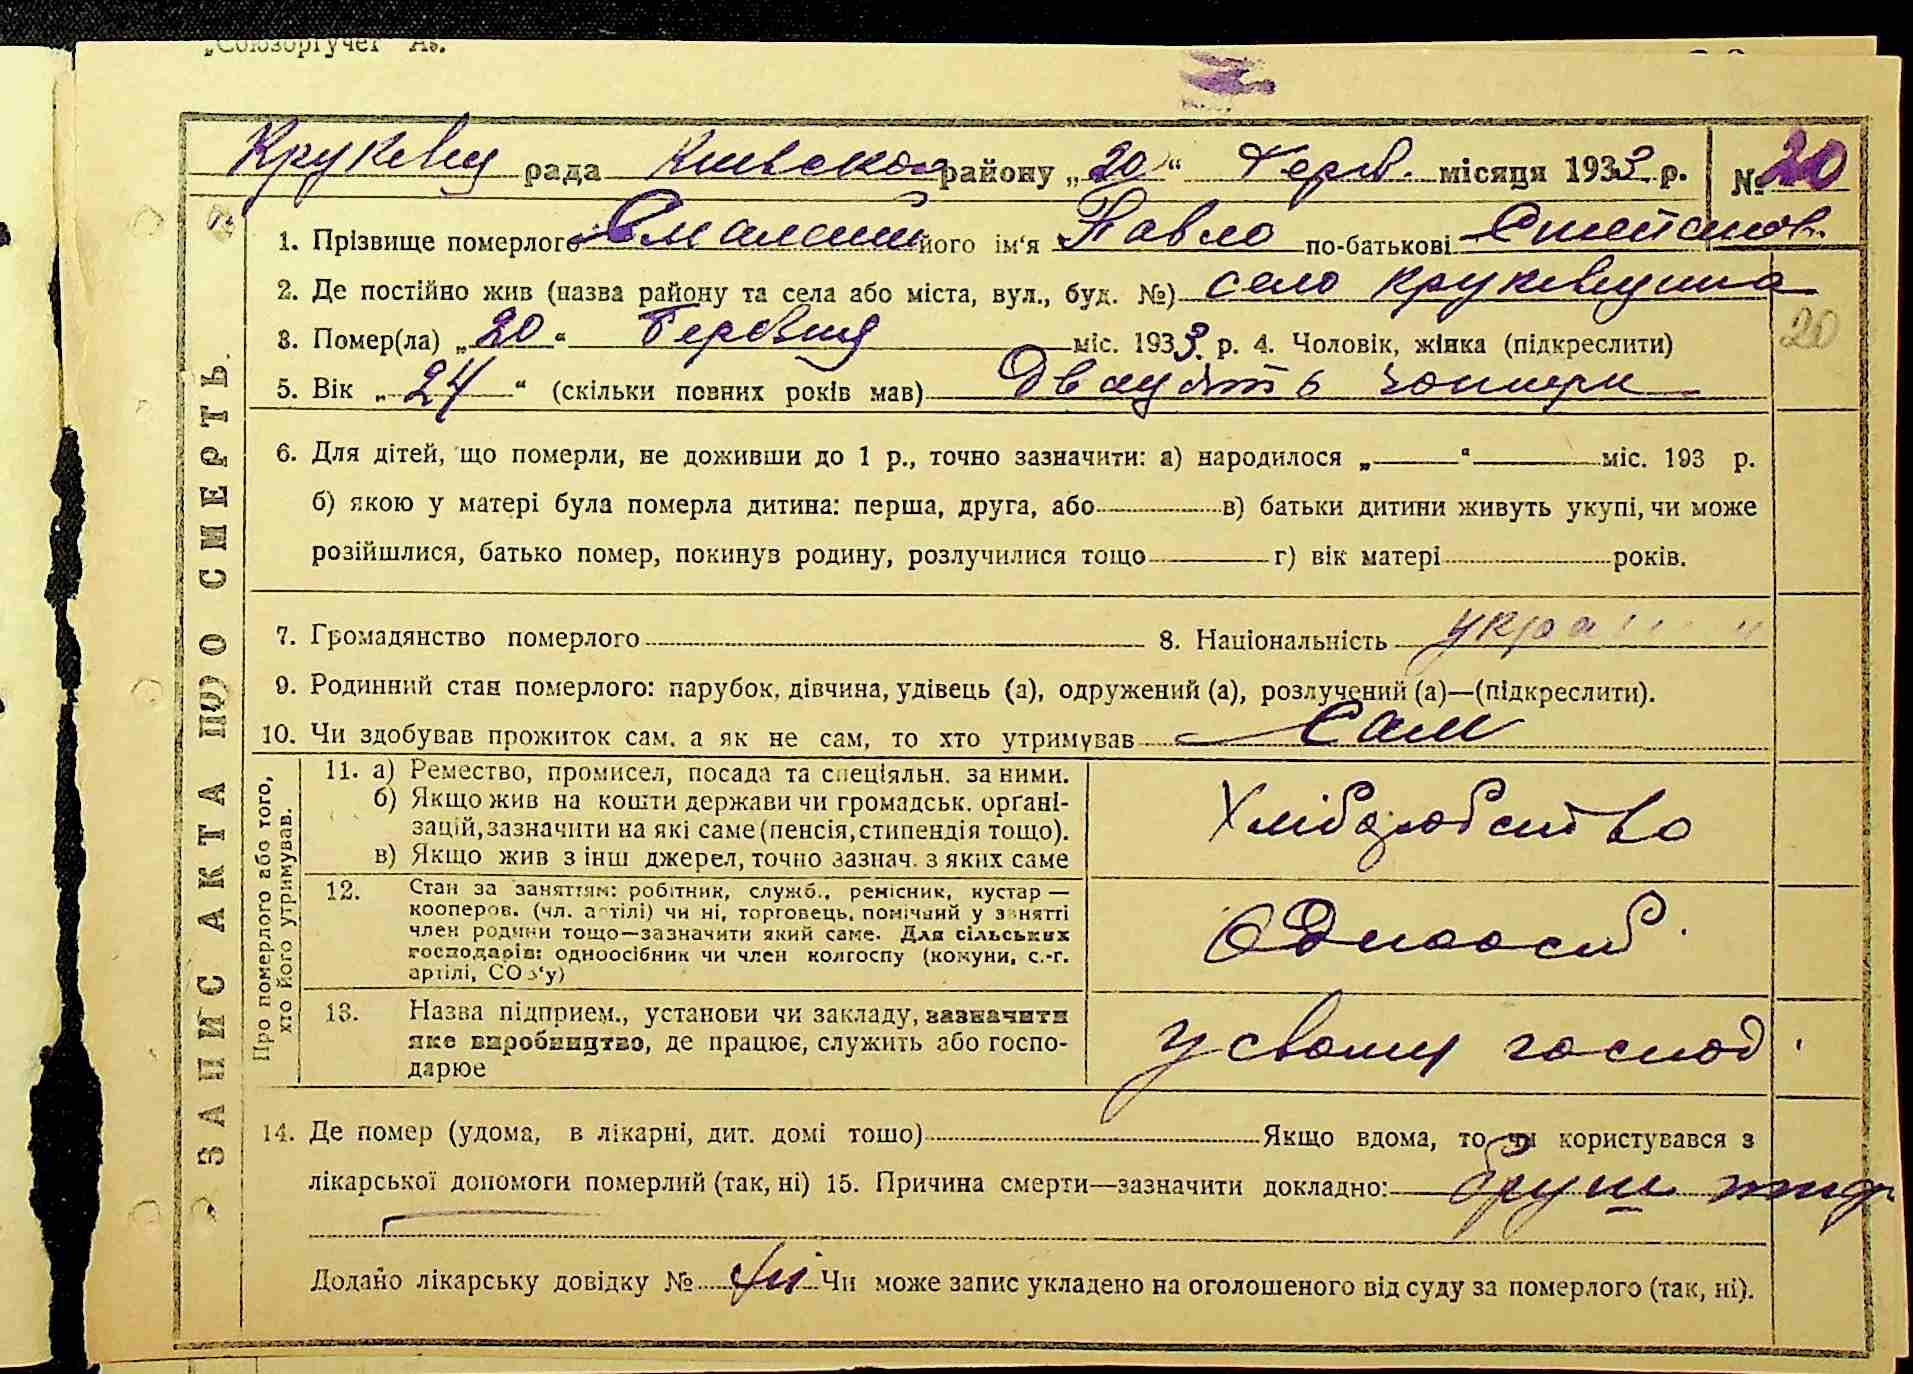 „Союзоргучет" А5.
Круківщ рада Київсько району „20" Черв. місяця 1933 р. № 20
1. Прізвище померлого його ім'я Павло по-батькові Степанов.
2. Де постійно жив (назва району та села або міста, вул., буд. №) село Круківщина
3. Помер(ла) „20" Червня міс. 1933. р. 4. Чоловік, жінка (підкреслити)
20
5. Вік „24" (скільки повних років мав) Двадцять чотири
6. Для дітей, що померли, не доживши до 1 р., точно зазначити: а) народилося „ " міс. 193 р.
б) якою у матері була померла дитина: перша, друга, або в) батьки дитини живуть укупі, чи може
розійшлися, батько помер, покинув родину, розлучилися тощо г) вік матері років.
7. Громадянство померлого 8. Національність
9. Родинний стан померлого: парубок, дівчина, удівець (а), одружений (а), розлучений (а)—(підкреслити).
10. Чи здобував прожиток сам, а як не сам, то хто утримував Сам
ЗАПИС АКТА ПРО СМЕРТЬ.
Про померлого або того,
хто його утримував.
11. а) Ремество, промисел, посада та спеціяльн. за ними.
б) Якщо жив на кошти держави чи громадськ. органі-
зацій, зазначити на які саме (пенсія, стипендія тощо).
в) Якщо жив з інш джерел, точно зазнач. з яких саме
Хліборобство
12. Стан за заняттям: робітник, служб., ремісник, кустар —
кооперов. (чл. артілі) чи ні, торговець, помічний у занятті
член родини тощо—зазначити який саме. Для сільських
господарів: одноосібник чи член колгоспу (комуни, с.-г.
артілі, СОЗ'у)
Однаосіб.
13. Назва підприєм., установи чи закладу, зазначити
яке виробництво, де працює, служить або госпо-
дарює
у свому господ.
14. Де помер (удома, в лікарні, дит. домі тощо) Якщо вдома, то чи користувався з
лікарської допомоги померлий (так, ні) 15. Причина смерти—зазначити докладно: бруш тиф
Додано лікарську довідку № Чи може запис укладено на оголошеного від суду за померлого (так, ні).